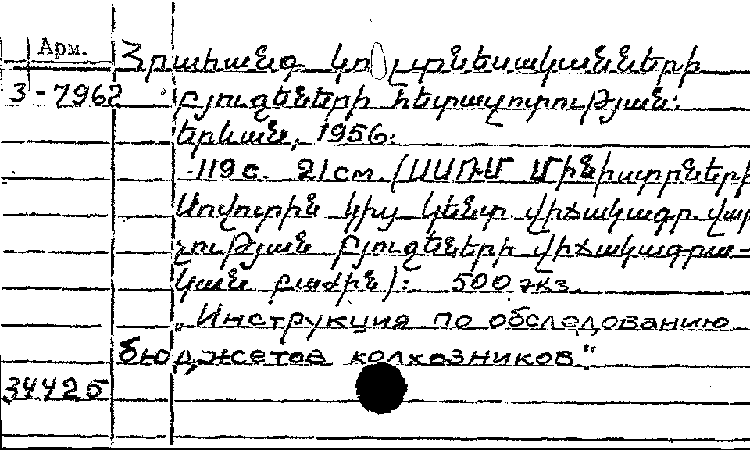 Арм.
Հրահանգ կոլտնտեսականների
3-7962 բյուջեների հետազոտության:
Երևան, 1956.
119 с. 21 см. (ՍՍՌՄ Մինիստրների
Սովետին կից կենտ. վիճակագր. վար
չության բյուջեների վիճակագրա-
կան բաժին): 500 экз.
„Инструкция по обследованию
бюджетов колхозников"
34425